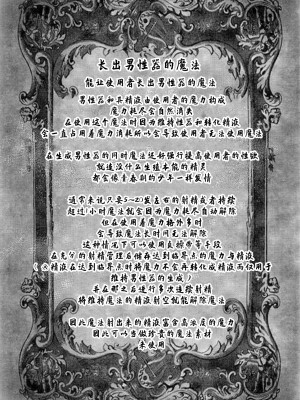 长出男性器的魔法
能让使用者长出男性器的魔法
男性器和其精液由使用者的魔力构成
魔力耗尽会自然消失
在使用这个魔法时因为维持性器和转化精液
会一直占用着魔力消耗所以会导致使用者无法使用魔法
在生成男性器的同时魔法还好强行提高使用者的性欲
就连没什么生殖本能的精灵
都会像青春期的少年一样发情
通常来说只要5~27发左右的射精或者持续
超过1小时魔法就会因为魔力耗尽自动解除
但在使用着魔力格外多时
会导致魔法长时间无法解除
这种情况下可以使用皮榜带等手段
在充分的射精管理后储存达到临界点的魔力与精液
维持男性器的生成)
并在那之后进行多次连续射精
将维持魔法的精液射空就能解除魔法
因此魔法射出来的精液富含高浓度的魔力
因此可以当做珍贵的魔法素材
来使用